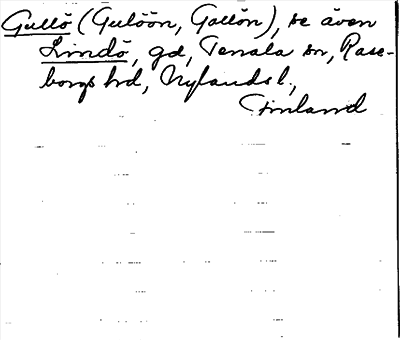 Gullö (Gulöön, Gollön), se även
Lindö, gd, Tenala sn, Rase-
borgs hd, Nylands l.,
Finland